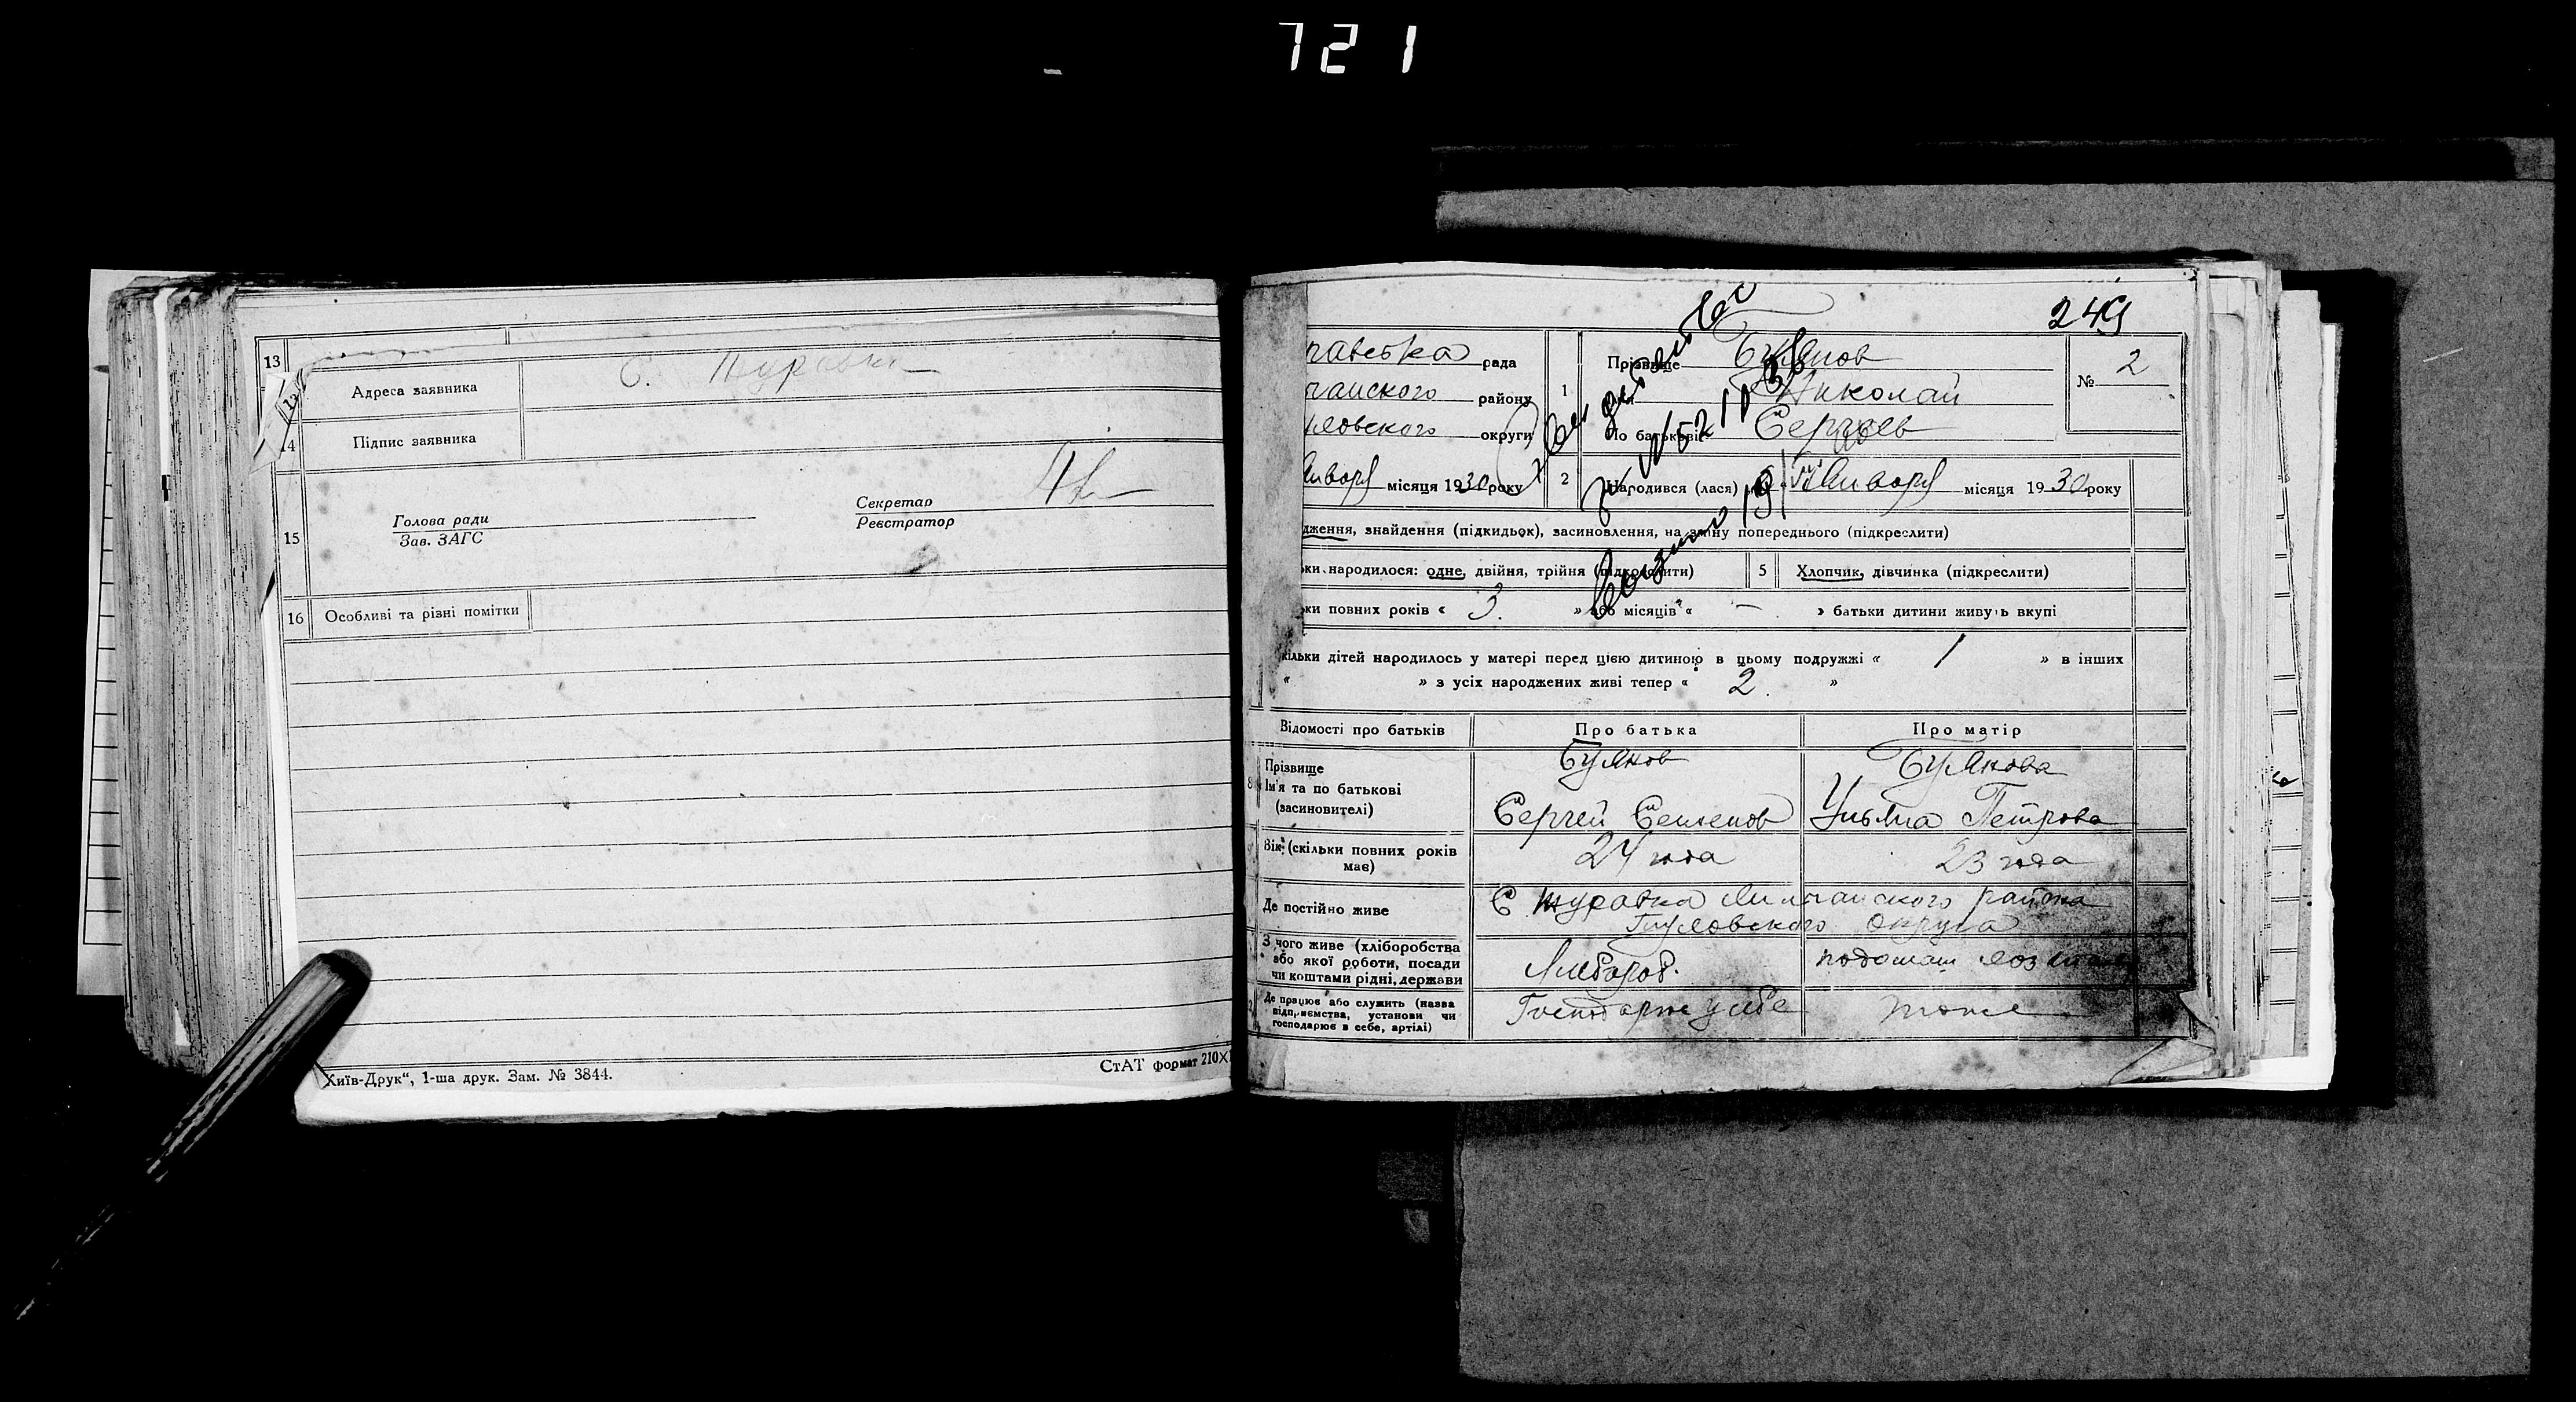 721
13
Адреса заявника
С. Журавка
14
Підпис заявника
15
Голова ради
Зав. ЗАГС
Секретар
Реєстратор
16
Особливі та різні помітки
Київ-Друк", 1-ша друк. Зам. № 3844.
СтАТ формат 210Х
249
равська рада
чанского району
ловского округи
Января місяця 1930 року
1
Прізвище Буянов
Николай
По батькові Сергеев
№ 2
2
Народився (лася) Января місяця 1930 року
дження, знайдення (підкидьок), засиновлення, на зміну попереднього (підкреслити)
ки народилося: одне, двійня, трійня (підкреслити)
5
Хлопчик, дівчинка (підкреслити)
ки повних років « 3. » або місяців « — » батьки дитини живуть вкупі
кільки дітей народилось у матері перед цією дитиною в цьому подружжі « 1 » в інших
« » з усіх народжених живі тепер « 2. »
Відомості про батьків
Про батька
Про матір
8
Прізвище
Ім'я та по батькові
(засновителі)
Буянов
Сергей Семенов
Буянова
Ульяна Петрова
Вік (скільки повних років
має)
24 года
23 года
Де постійно живе
С Журавка района
округа
З чого живе (хліборобства
або якої роботи, посади
чи коштами рідні, держави
Хлебороб.
Де працює або служить (назва
підприємства, установи чи
господарює в себе, артілі)
тоже